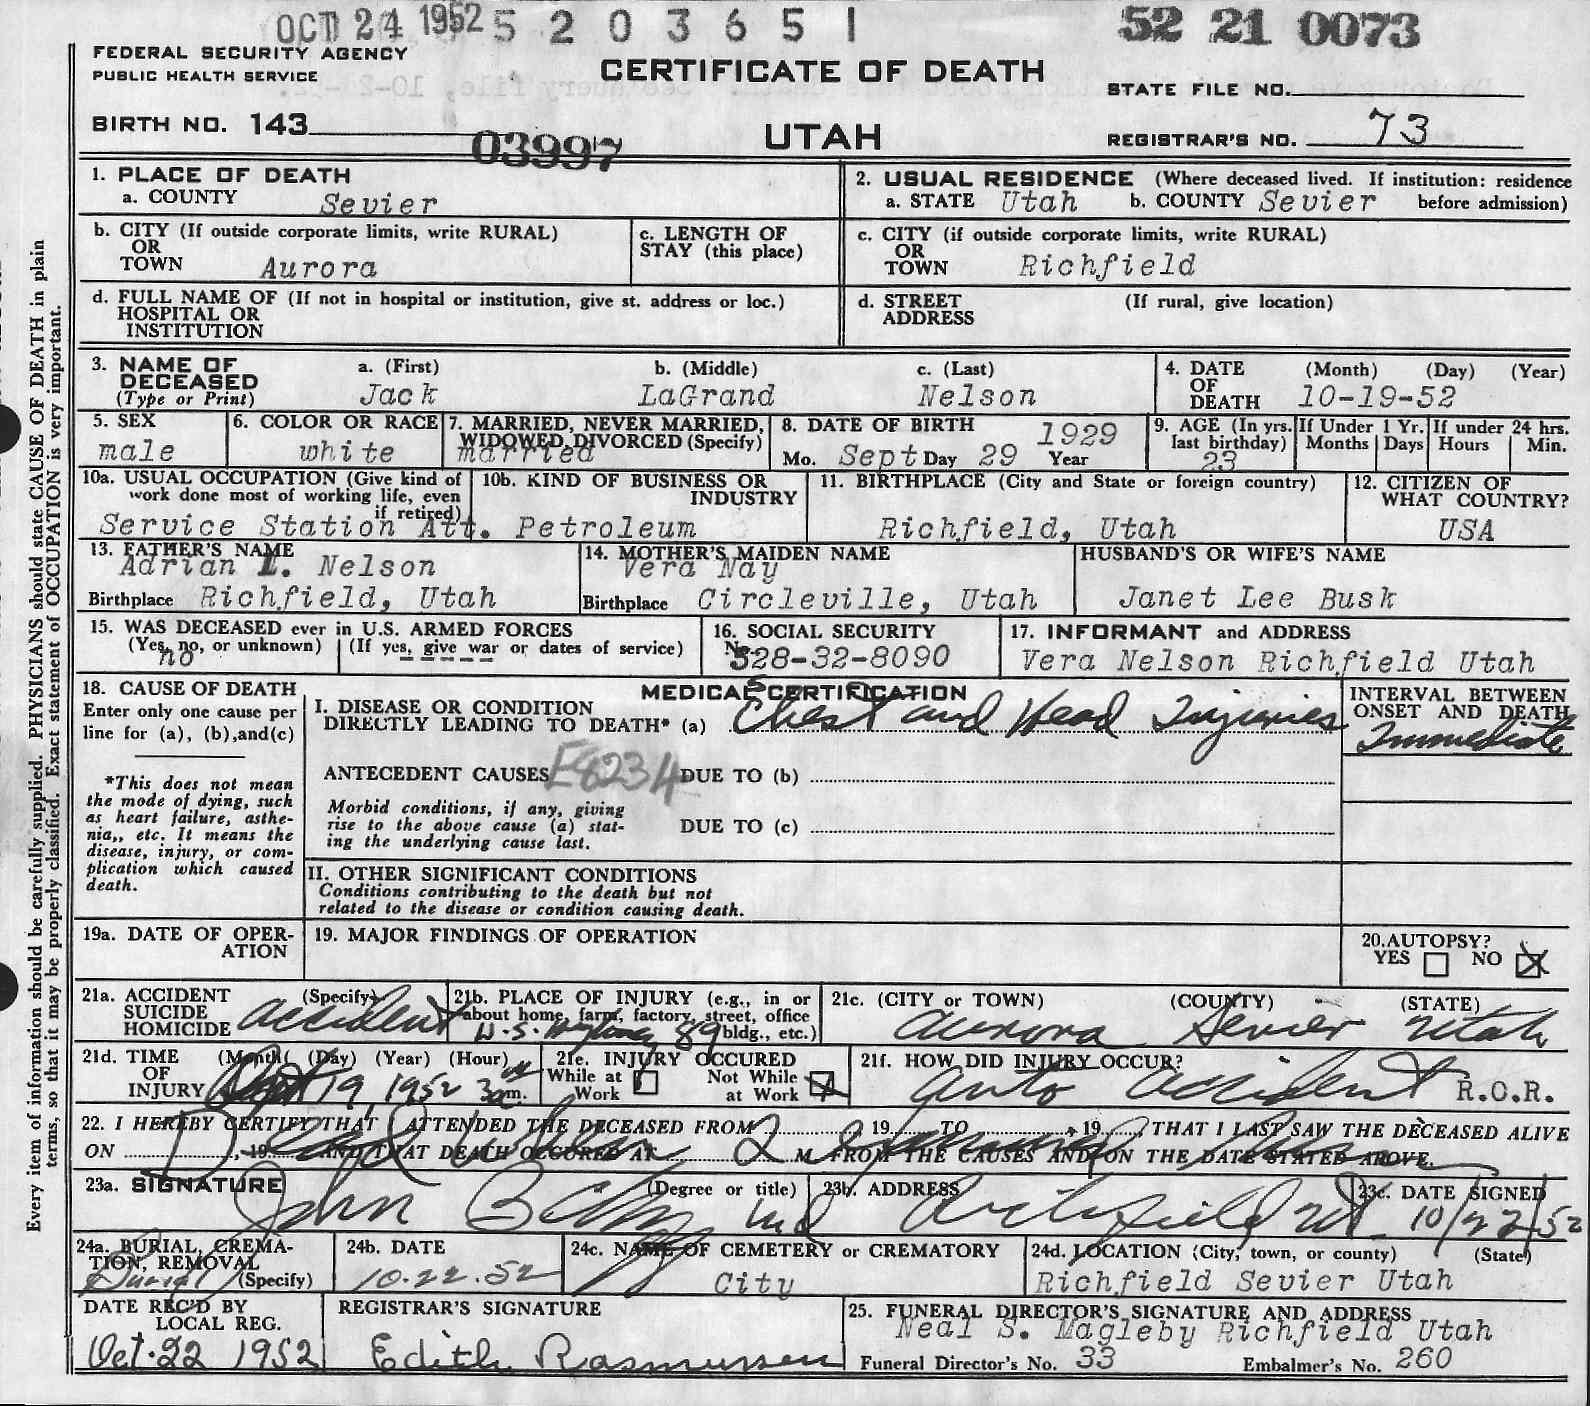 OCT 24 1952 5 2 0 3 6 5 1 52 21 0073
FEDERAL SECURITY AGENCY
PUBLIC HEALTH SERVICE
CERTIFICATE OF DEATH
STATE FILE NO.
BIRTH NO. 143
03997
UTAH
REGISTRAR'S NO. 73
1. PLACE OF DEATH
a. COUNTY Sevier
2. USUAL RESIDENCE (Where deceased lived. If institution: residence before admission)
a. STATE Utah b. COUNTY Sevier
b. CITY (If outside corporate limits, write RURAL)
OR
TOWN Aurora
c. LENGTH OF
STAY (this place)
c. CITY (if outside corporate limits, write RURAL)
OR
TOWN Richfield
d. FULL NAME OF (If not in hospital or institution, give st. address or loc.)
HOSPITAL OR
INSTITUTION
d. STREET (If rural, give location)
ADDRESS
3. NAME OF
DECEASED
(Type or Print)
a. (First) b. (Middle) c. (Last)
Jack LaGrand Nelson
4. DATE (Month) (Day) (Year)
OF
DEATH 10-19-52
5. SEX
male
6. COLOR OR RACE
white
7. MARRIED, NEVER MARRIED,
WIDOWED, DIVORCED (Specify)
married
8. DATE OF BIRTH 1929
Mo. Sept Day 29 Year
9. AGE (In yrs. last birthday)
23
If Under 1 Yr.
Months Days
If under 24 hrs.
Hours Min.
10a. USUAL OCCUPATION (Give kind of
work done most of working life, even
if retired)
Service Station Att.
10b. KIND OF BUSINESS OR
INDUSTRY
Petroleum
11. BIRTHPLACE (City and State or foreign country)
Richfield, Utah
12. CITIZEN OF
WHAT COUNTRY?
USA
13. FATHER'S NAME
Adrian L. Nelson
Birthplace Richfield, Utah
14. MOTHER'S MAIDEN NAME
Vera Nay
Birthplace Circleville, Utah
HUSBAND'S OR WIFE'S NAME
Janet Lee Busk
15. WAS DECEASED ever in U.S. ARMED FORCES
(Yes, no, or unknown) (If yes, give war or dates of service)
no ----
16. SOCIAL SECURITY
No. 528-32-8090
17. INFORMANT and ADDRESS
Vera Nelson Richfield Utah
18. CAUSE OF DEATH
Enter only one cause per
line for (a), (b), and (c)
*This does not mean
the mode of dying, such
as heart failure, asthe-
nia,, etc. It means the
disease, injury, or com-
plication which caused
death.
MEDICAL CERTIFICATION
I. DISEASE OR CONDITION
DIRECTLY LEADING TO DEATH* (a) Chest and Head Injuries
INTERVAL BETWEEN
ONSET AND DEATH
Immediate
ANTECEDENT CAUSES E8234 DUE TO (b)
Morbid conditions, if any, giving
rise to the above cause (a) stat-
ing the underlying cause last.
DUE TO (c)
II. OTHER SIGNIFICANT CONDITIONS
Conditions contributing to the death but not
related to the disease or condition causing death.
19a. DATE OF OPER-
ATION
19. MAJOR FINDINGS OF OPERATION
20. AUTOPSY?
YES NO X
21a. ACCIDENT (Specify)
SUICIDE
HOMICIDE accident
21b. PLACE OF INJURY (e.g., in or
about home, farm, factory, street, office
bldg., etc.)
U.S. 89
21c. (CITY or TOWN) (COUNTY) (STATE)
Aurora Sevier Utah
21d. TIME (Month) (Day) (Year) (Hour)
OF
INJURY 19 1952 m.
21e. INJURY OCCURED
While at Work Not While at Work X
21f. HOW DID INJURY OCCUR?
auto accident R.O.R.
22. I HEREBY CERTIFY THAT I ATTENDED THE DECEASED FROM 19 TO , 19 , THAT I LAST SAW THE DECEASED ALIVE
ON , 19 AND THAT DEATH OCCURED AT M FROM THE CAUSES AND ON THE DATE STATED ABOVE.
Dead when I
23a. SIGNATURE (Degree or title)
John md
23b. ADDRESS
Richfield Ut
23c. DATE SIGNED
10/22/52
24a. BURIAL, CREMA-
TION, REMOVAL
(Specify)
Burial
24b. DATE
10.22.52
24c. NAME OF CEMETERY or CREMATORY
City
24d. LOCATION (City, town, or county) (State)
Richfield Sevier Utah
DATE REC'D BY
LOCAL REG.
Oct. 22 1952
REGISTRAR'S SIGNATURE
Edith Rasmussen
25. FUNERAL DIRECTOR'S SIGNATURE AND ADDRESS
Neal S. Magleby Richfield Utah
Funeral Director's No. 33 Embalmer's No. 260
Every item of information should be carefully supplied. PHYSICIANS should state CAUSE OF DEATH in plain
terms, so that it may be properly classified. Exact statement of OCCUPATION is very important.